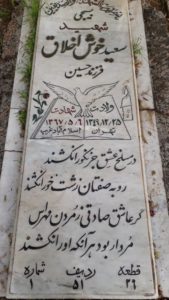 بسیجی
شهید
سعید خوش اخلاق
فرزند حسین
ولادت شهادت
۱۳۴۹.۱۲.۲۵ ۱۳۶۷.۵.۶
تهران اسلام آباد غرب
در مسلخ عشق جز نکو را نکشند
روبه صفتان زشت خو را نکشند
گر عاشق صادقی ز مردن مهراس
مردار بود هر آنکه او را نکشند
قطعه ردیف شماره
۲۶ ۵۱ ۱